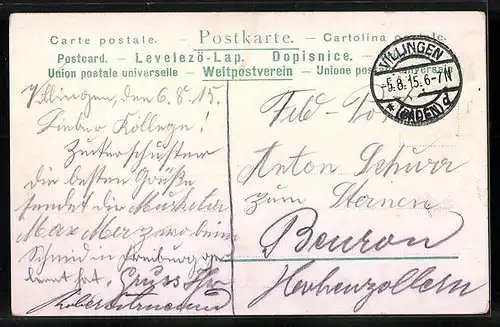 Carte postale. – Postkarte. – Cartolina postale.
Postcard. – Levelezö-Lap. Dopisnice. –
Union postale universelle – Weltpostverein – Unione postale universale
VILLINGEN
-5.8.15.6-7N
* (BADEN) d
Villingen, den 6.8.15.
Lieber Kollege!
die besten Grüße
sendet dir Musketier
Max Merz
Schmid in Freiburg ge-
lernt hat. Gruss Ihr
Feld-Post
Anton Schurr
zum Sternen
Beuron
Hohenzollern